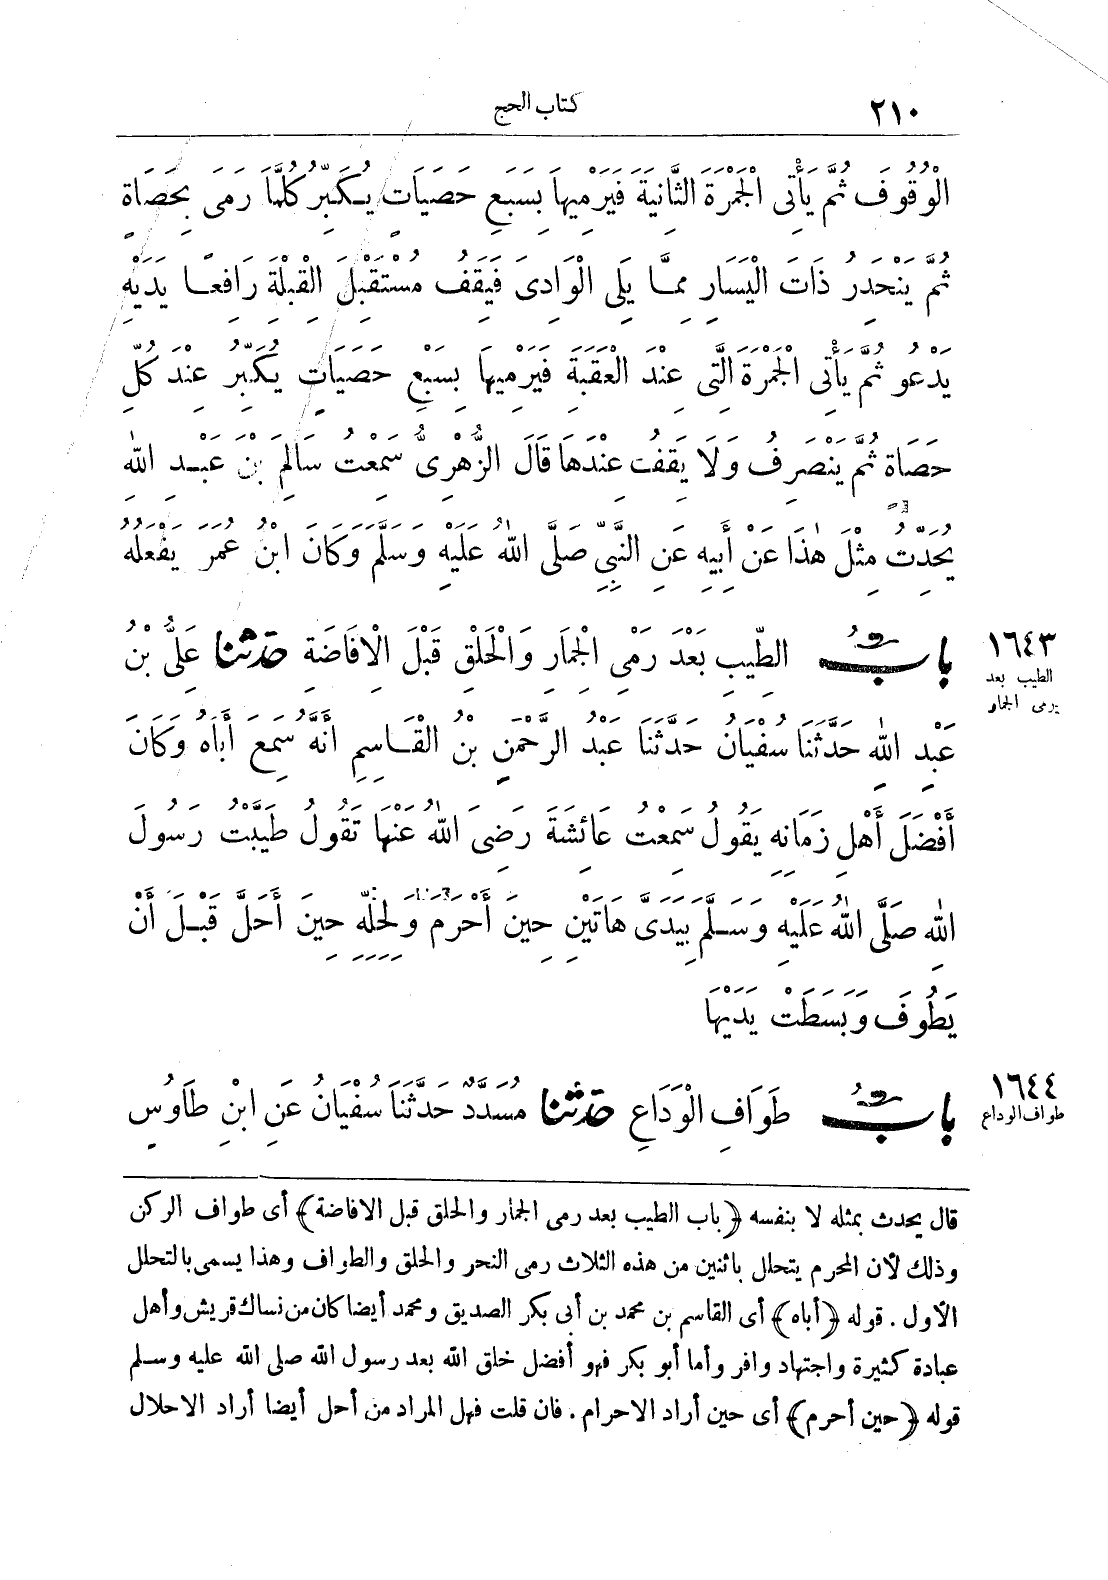 ٢١٠
كتاب الحج
الْوُقُوفَ ثُمَّ يَأْتِى الْجَمْرَةَ الثَّانِيَةَ فَيَرْمِيهَا بِسَبْعِ حَصَيَاتٍ يُكَبِّرُ كُلَّمَا رَمَى بِحَصَاةٍ
ثُمَّ يَنْحَدِرُ ذَاتَ الْيَسَارِ مِمَّا يَلِى الْوَادِىَ فَيَقِفُ مُسْتَقْبِلَ الْقِبْلَةِ رَافِعًا يَدَيْهِ
يَدْعُو ثُمَّ يَأْتِى الْجَمْرَةَ الَّتِى عِنْدَ الْعَقَبَةِ فَيَرْمِيهَا بِسَبْعِ حَصَيَاتٍ يُكَبِّرُ عِنْدَ كُلِّ
حَصَاةٍ ثُمَّ يَنْصَرِفُ وَلَا يَقِفُ عِنْدَهَا قَالَ الزُّهْرِىُّ سَمِعْتُ سَالِمَ بْنَ عَبْدِ اللهِ
يُحَدِّثُ مِثْلَ هٰذَا عَنْ أَبِيهِ عَنِ النَّبِىِّ صَلَّى اللهُ عَلَيْهِ وَسَلَّمَ وَكَانَ ابْنُ عُمَرَ يَفْعَلُهُ
١٦٤٣
الطيب بعد
رمى الجمار
بَابُ الطِّيبِ بَعْدَ رَمْىِ الْجِمَارِ وَالْحَلْقِ قَبْلَ الْاِفَاضَةِ حَدَّثَنَا عَلِىُّ بْنُ
عَبْدِ اللهِ حَدَّثَنَا سُفْيَانُ حَدَّثَنَا عَبْدُ الرَّحْمٰنِ بْنُ الْقَاسِمِ أَنَّهُ سَمِعَ أَبَاهُ وَكَانَ
أَفْضَلَ أَهْلِ زَمَانِهِ يَقُولُ سَمِعْتُ عَائِشَةَ رَضِىَ اللهُ عَنْهَا تَقُولُ طَيَّبْتُ رَسُولَ
اللهِ صَلَّى اللهُ عَلَيْهِ وَسَلَّمَ بِيَدَىَّ هَاتَيْنِ حِينَ أَحْرَمَ وَلِحِلِّهِ حِينَ أَحَلَّ قَبْلَ أَنْ
يَطُوفَ وَبَسَطَتْ يَدَيْهَا
١٦٤٤
طواف الوداع
بَابُ طَوَافِ الْوَدَاعِ حَدَّثَنَا مُسَدَّدٌ حَدَّثَنَا سُفْيَانُ عَنِ ابْنِ طَاوُسٍ
قال يحدث بمثله لا بنفسه ﴿باب الطيب بعد رمى الجمار والحلق قبل الافاضة﴾ أى طواف الركن
وذلك لأن المحرم يتحلل باثنين من هذه الثلاث رمى النحر والحلق والطواف وهذا يسمى بالتحلل
الأول . قوله ﴿أباه﴾ أى القاسم بن محمد بن أبى بكر الصديق ومحمد أيضا كان من نساك قريش وأهل
عبادة كثيرة واجتهاد وافر وأما أبو بكر فهو أفضل خلق الله بعد رسول الله صلى الله عليه وسلم
قوله ﴿حين أحرم﴾ أى حين أراد الاحرام . فان قلت فهل المراد من أحل أيضا أراد الاحلال